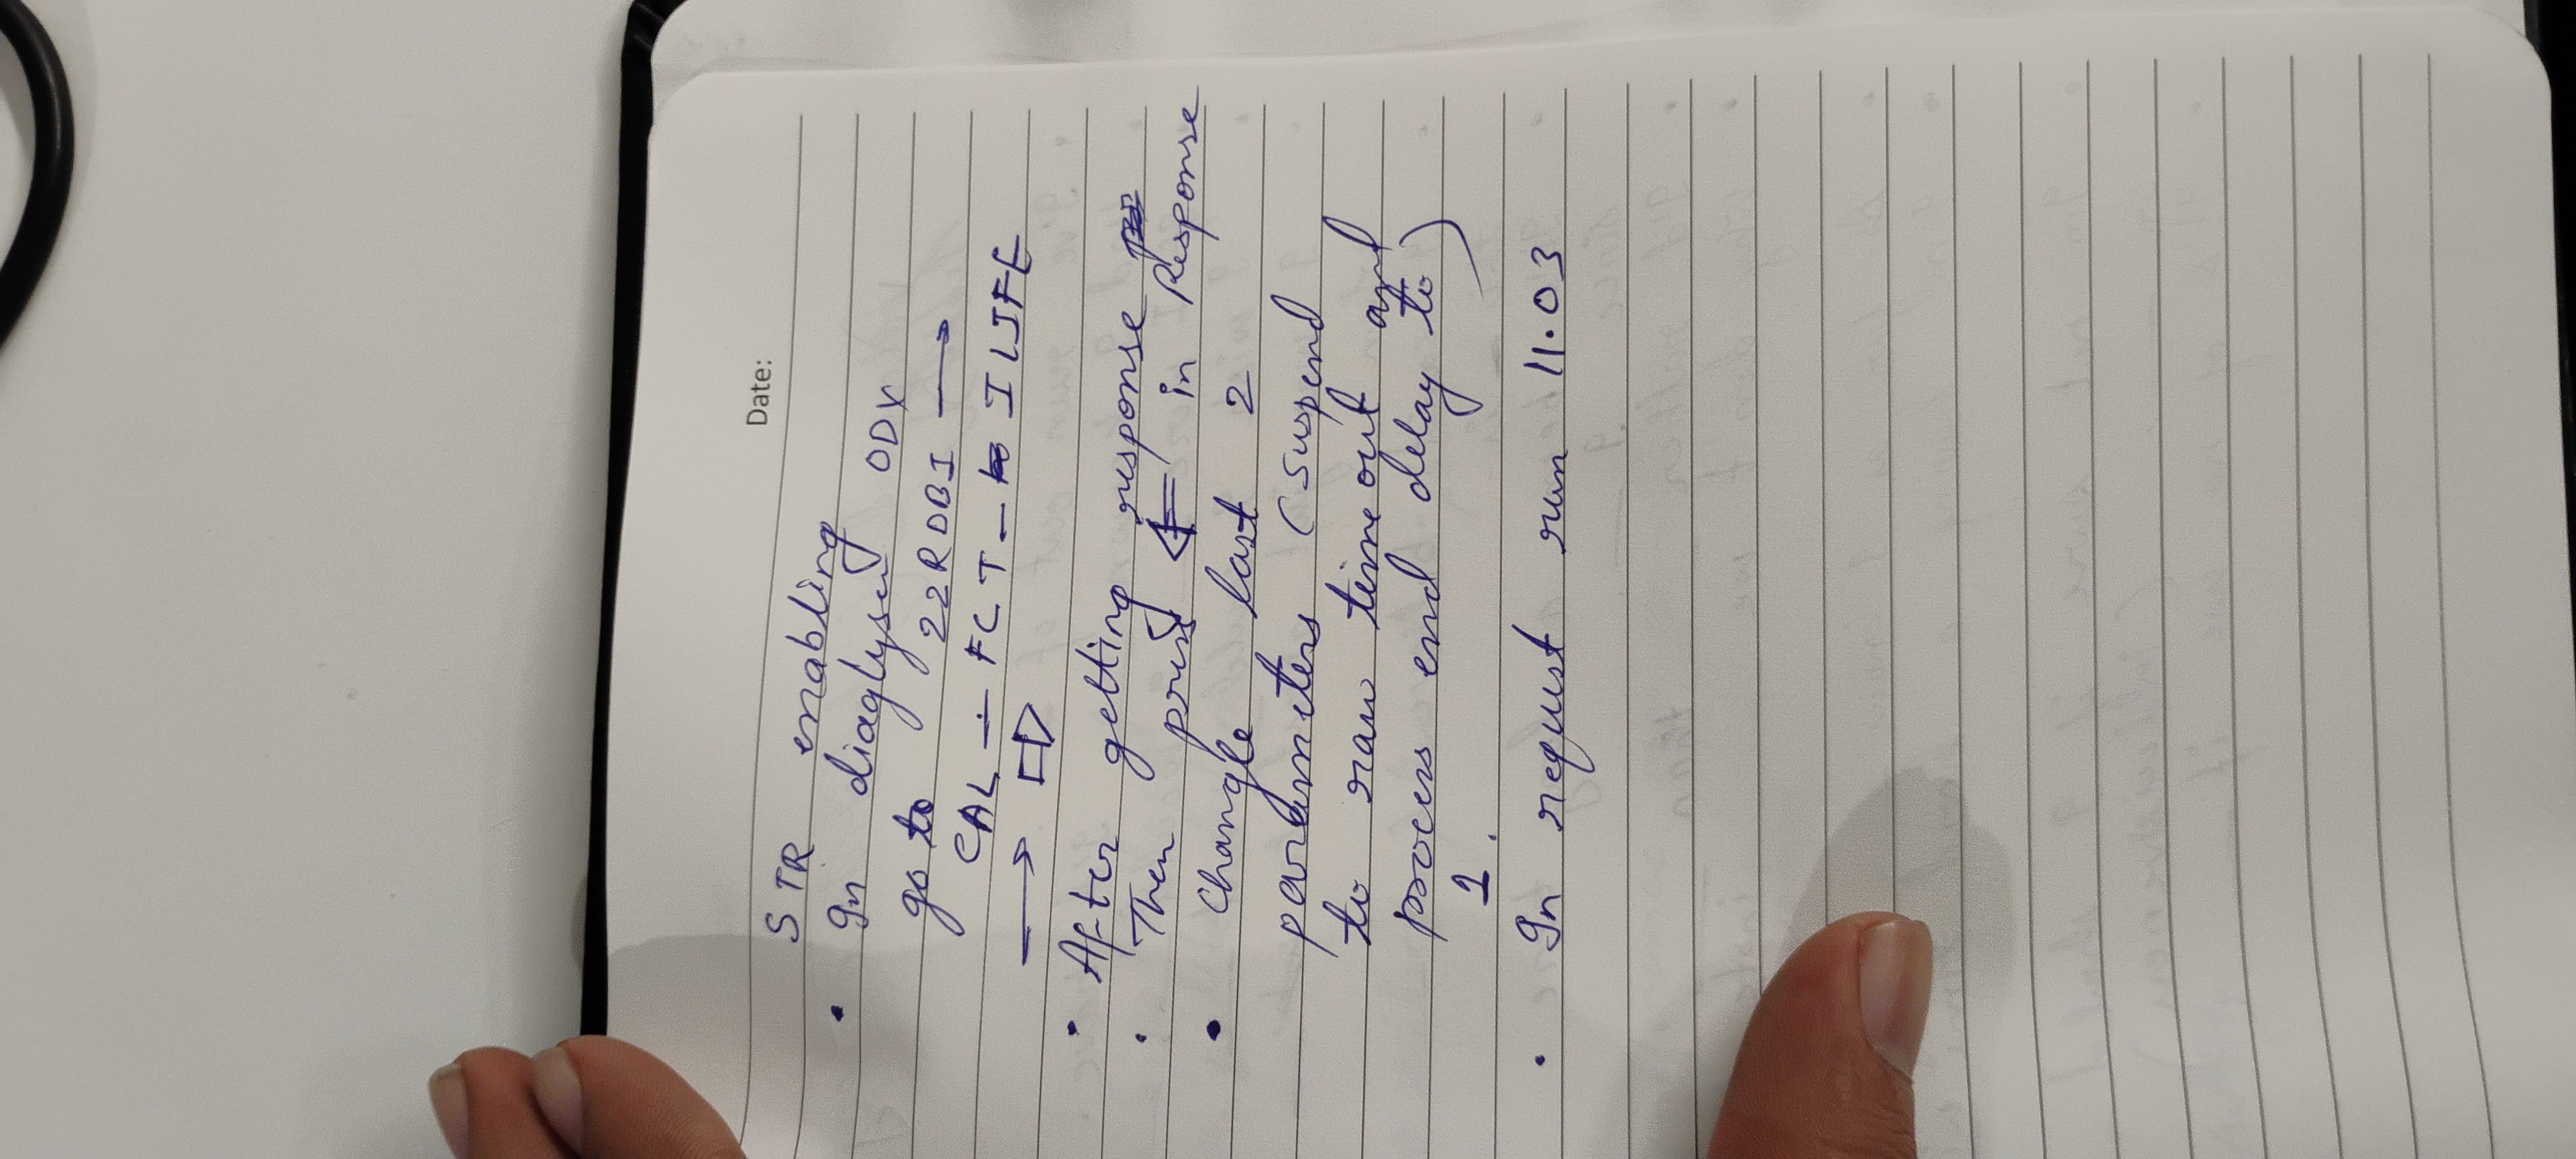 Date:
STR enabling
• In diaglyser ODX
go to 22RDBI →
CAL - FCT - ILIFE
→ ⇨
• After getting response
• Then press ⇐ in Response
• Changle last 2
parameters (suspend
to raw timeout and
process end delay to)
1.
• In request run 11.03